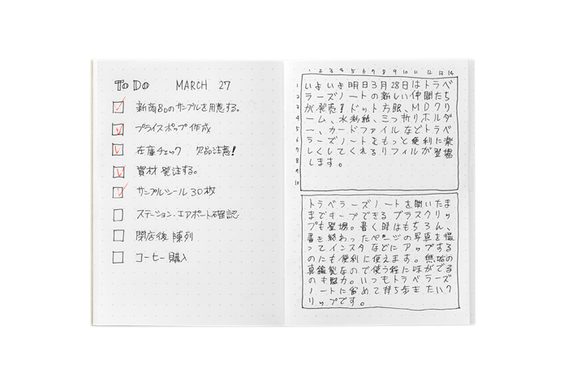 To Do MARCH 27
新商品のサンプルを用意する。
プライスポップ作成
在庫チェック 欠品注意!
資材発注する。
サンプルシール30枚
ステーションエアポート確認
閉店後 陳列
コーヒー購入
1 2 3 4 5 6 7 8 9 10 11 12 13 14
1 いよいよ明日3月28日はトラベ
2 ラーズノートの新しい仲間たち
3 が発売!ドット方眼、MDクリ
4 ーム、水彩紙、三つ折りホルダ
5 ー、カードファイルなどトラベ
6 ラーズノートをもっと便利に楽
7 しくしてくれるリフィルが登場
8 します。
9
10
トラベラーズノートを開いたま
まキープできるブラスクリッ
プも登場。書く時はもちろん、
書き終わったページの写真を撮
ってインスタなどにアップする
のにも便利に使えます。無垢の
真鍮製なので使う程に味がでる
のも魅力。いつもトラベラーズ
ノートに留めて持ち歩きたいク
リップです。